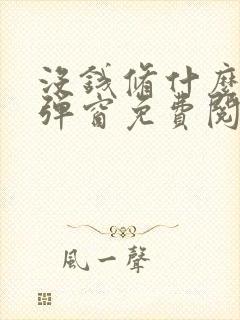 沒錢脩什麼
彈窗免費閱
風一聲